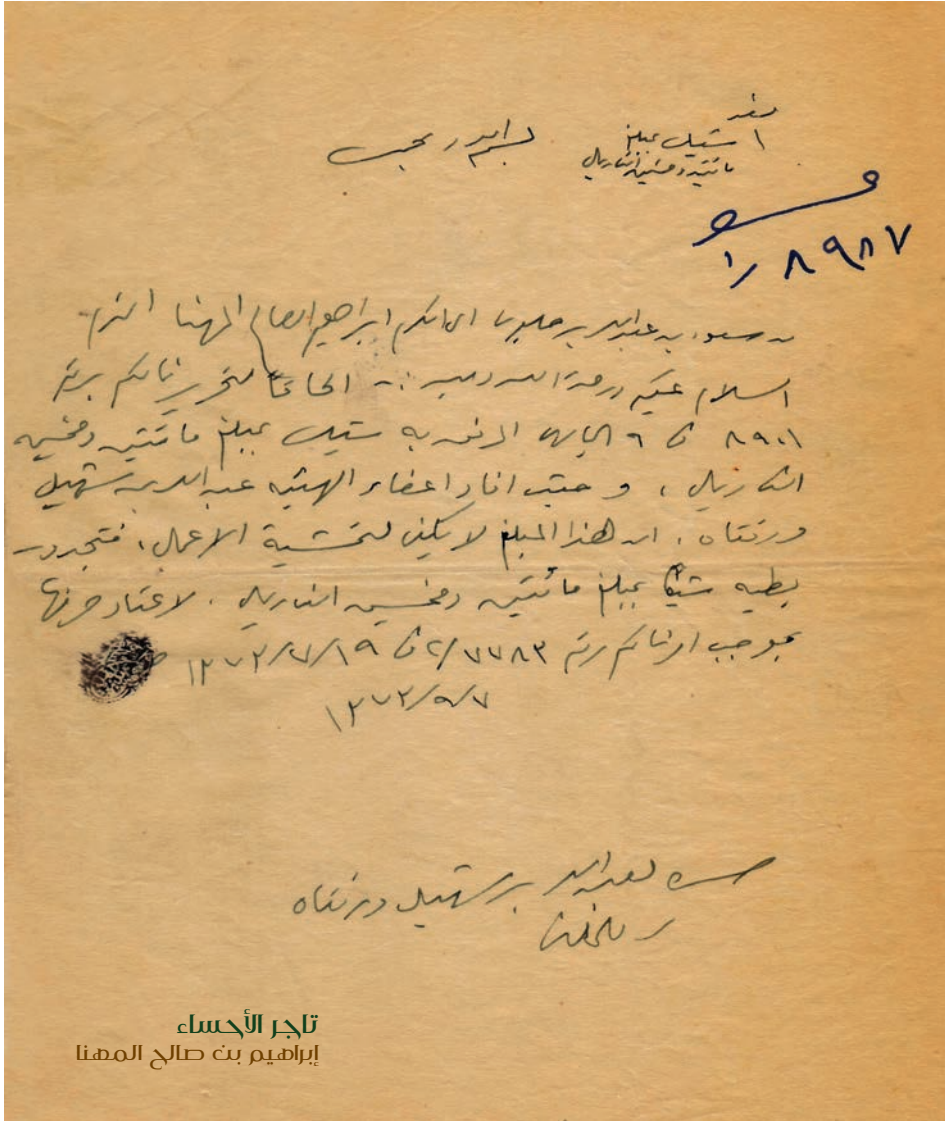 بعد
١ شيك بمبلغ
مائتين وخمسين الف ريال
بسم الله
٨٩٨٧
من سعود بن عبدالله بن جلوي الى المكرم ابراهيم الصالح المهنا المحترم
السلام عليكم ورحمة الله وبعد :- الحاقا لتحريرنا لكم برقم
٨٩٠١ في ٩ الجاري المرفق به شيك بمبلغ مائتين وخمسين
الف ريال ، و حيث افاد اعضاء الهيئة عبدالله بن سهيل
ورفقاه ، ان هذا المبلغ لا يكفي لتمشية الاعمال ، فتجدون
بطيه شيكا بمبلغ مائتين وخمسين الف ريال . لاعتماد صرفها
بموجب امرنا لكم رقم ٢/٧٧٨٣ في ١٣٧٣/٧/١٩
١٣٧٣/٩/٧
صورة لعبدالله بن سهيل ورفقاه
تاجر الأحساء
إبراهيم بن صالح المهنا